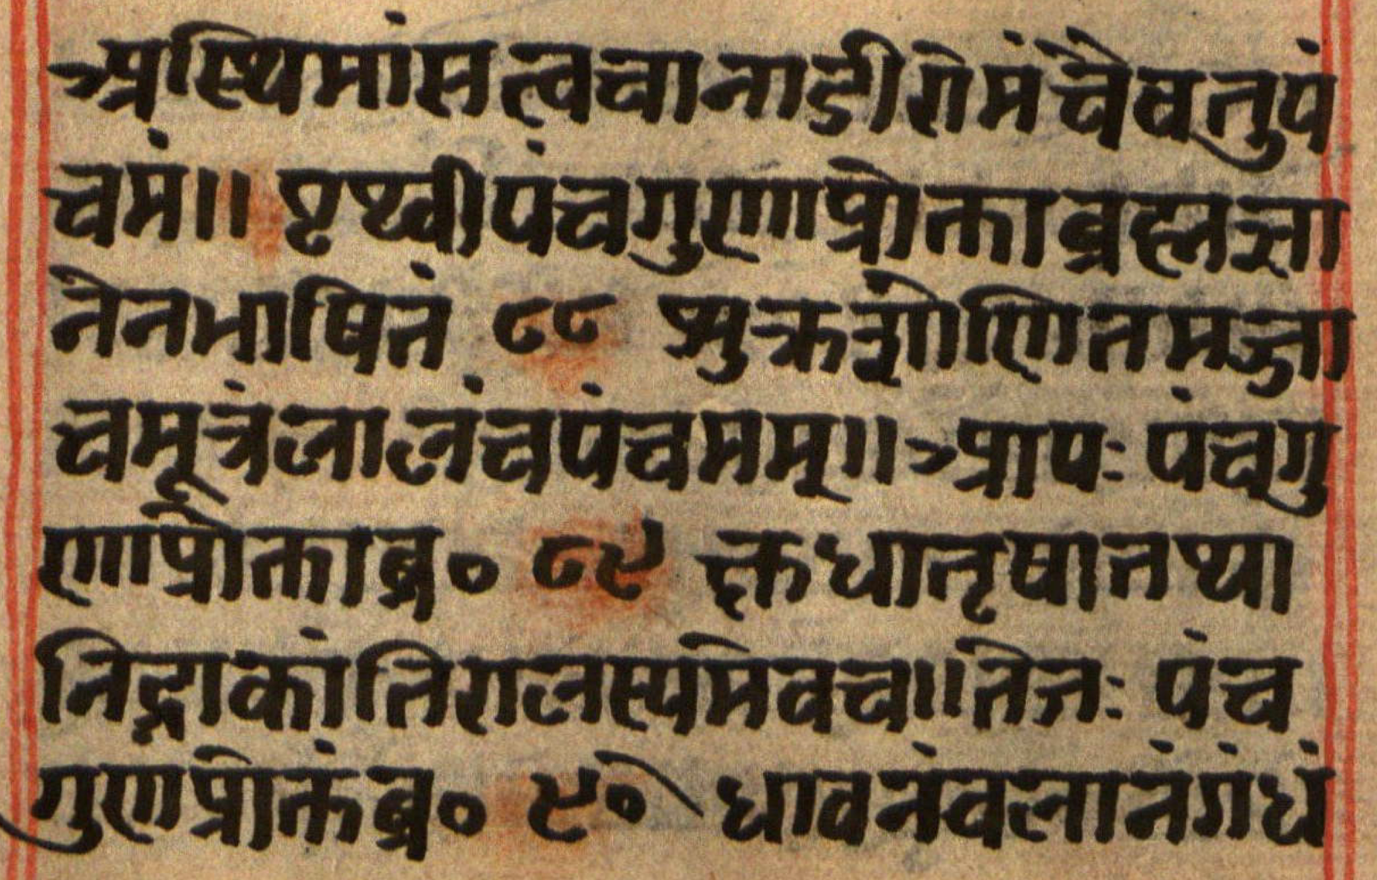 अस्थिमांसत्वचानाडीरोमंचैवतुपं
चमं॥ पृथ्वीपंचगुणाप्रोक्ताब्रह्मज्ञा
नेनभाषितं ८८ शुक्रशोणितमज्जा
चमूत्रंलालंचपंचमम्॥ आपः पंचगु
णाप्रोक्ताब्र० ८९ क्तुधातृषातथा
निद्राकांतिरालस्यमेवच॥तेजः पंच
गुणप्रोक्तंब्र० ९० धावनंवलानंगंधं